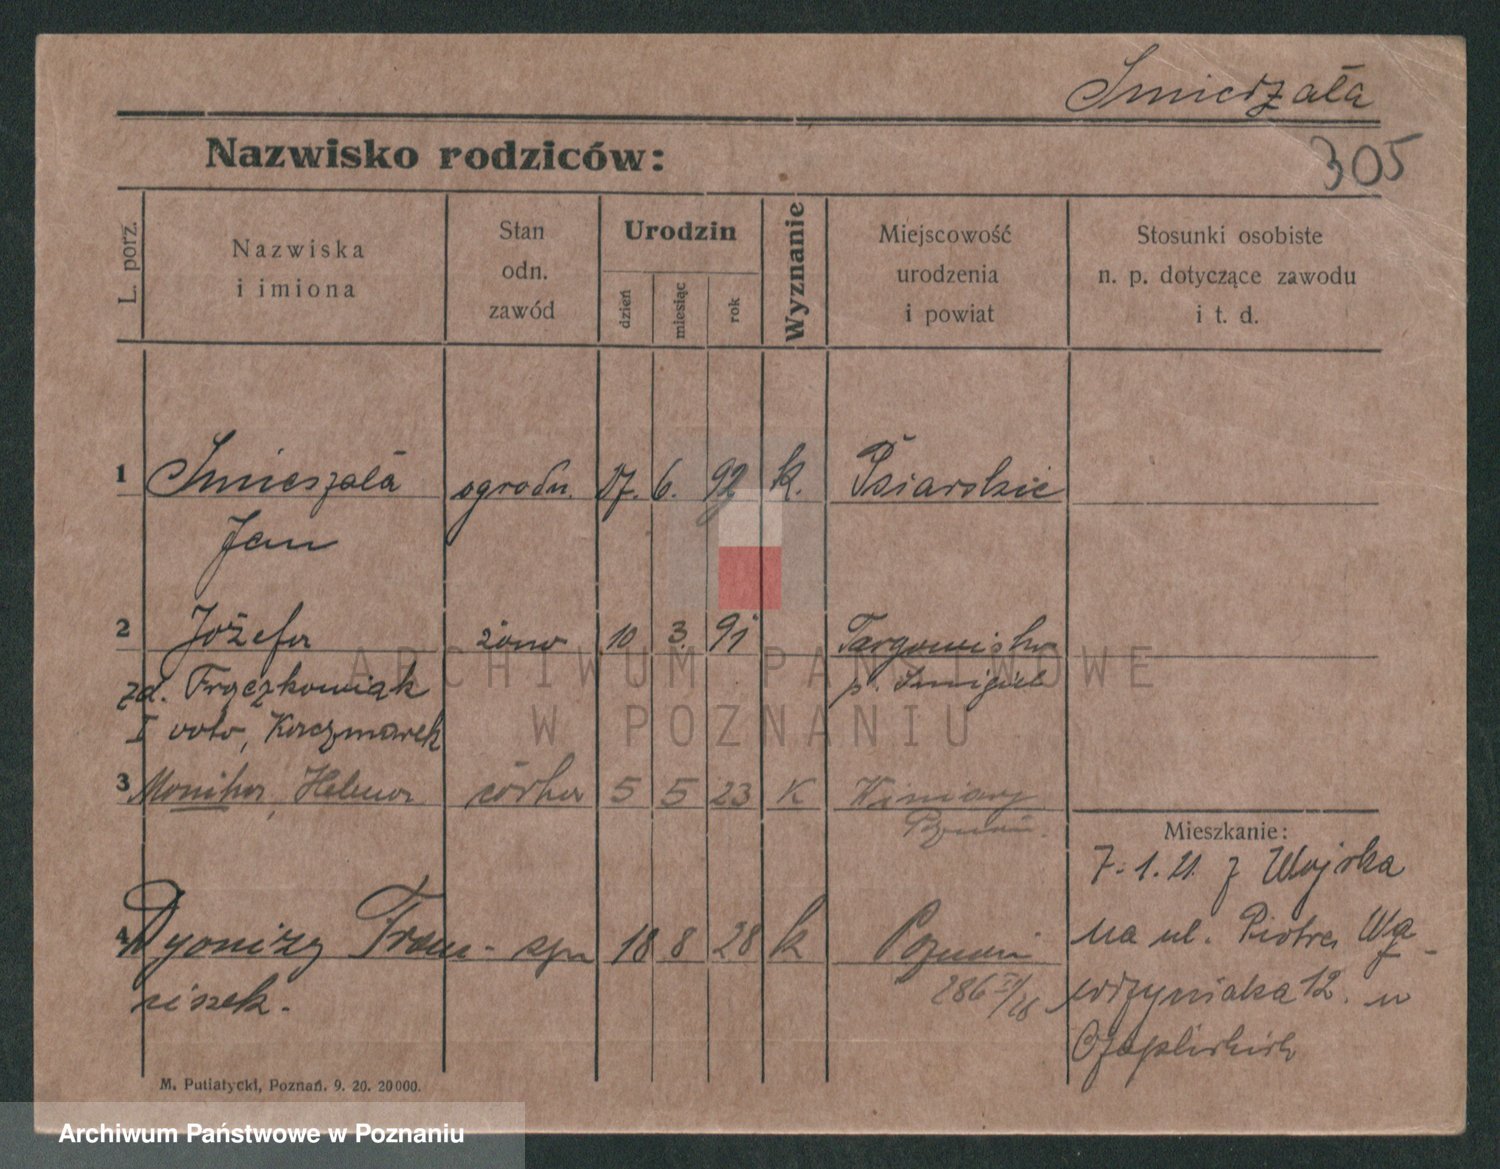 Smierzała
305
Nazwisko rodziców:
L. porz.
Nazwiska
i imiona
Stan
odn.
zawód
Urodzin
dzień
miesiąc
rok
Wyznanie
Miejscowość
urodzenia
i powiat
Stosunki osobiste
n. p. dotyczące zawodu
i t. d.
1 Smieszała ogrodn. 17. 6. 92 k. Psiarskie
Jan
2 Józefa żona 10 3. 91 Targowisko
zd. Frączkowiak p. Śmigiel
I voto, Kaczmarek
3 Monika, Helena córka 5 5 23 K Winiary
Poznań.
Mieszkanie:
7.1.21. z Wojska
na ul. Piotra Wa-
wrzyniaka 12. u
Czaplickich
4 Dyonizy Fran- syn 18 8 28 k Poznań
ciszek.
286 IV/28
M. Putiatycki, Poznań. 9. 20. 20000.
ARCHIWUM PAŃSTWOWE
W POZNANIU
Archiwum Państwowe w Poznaniu